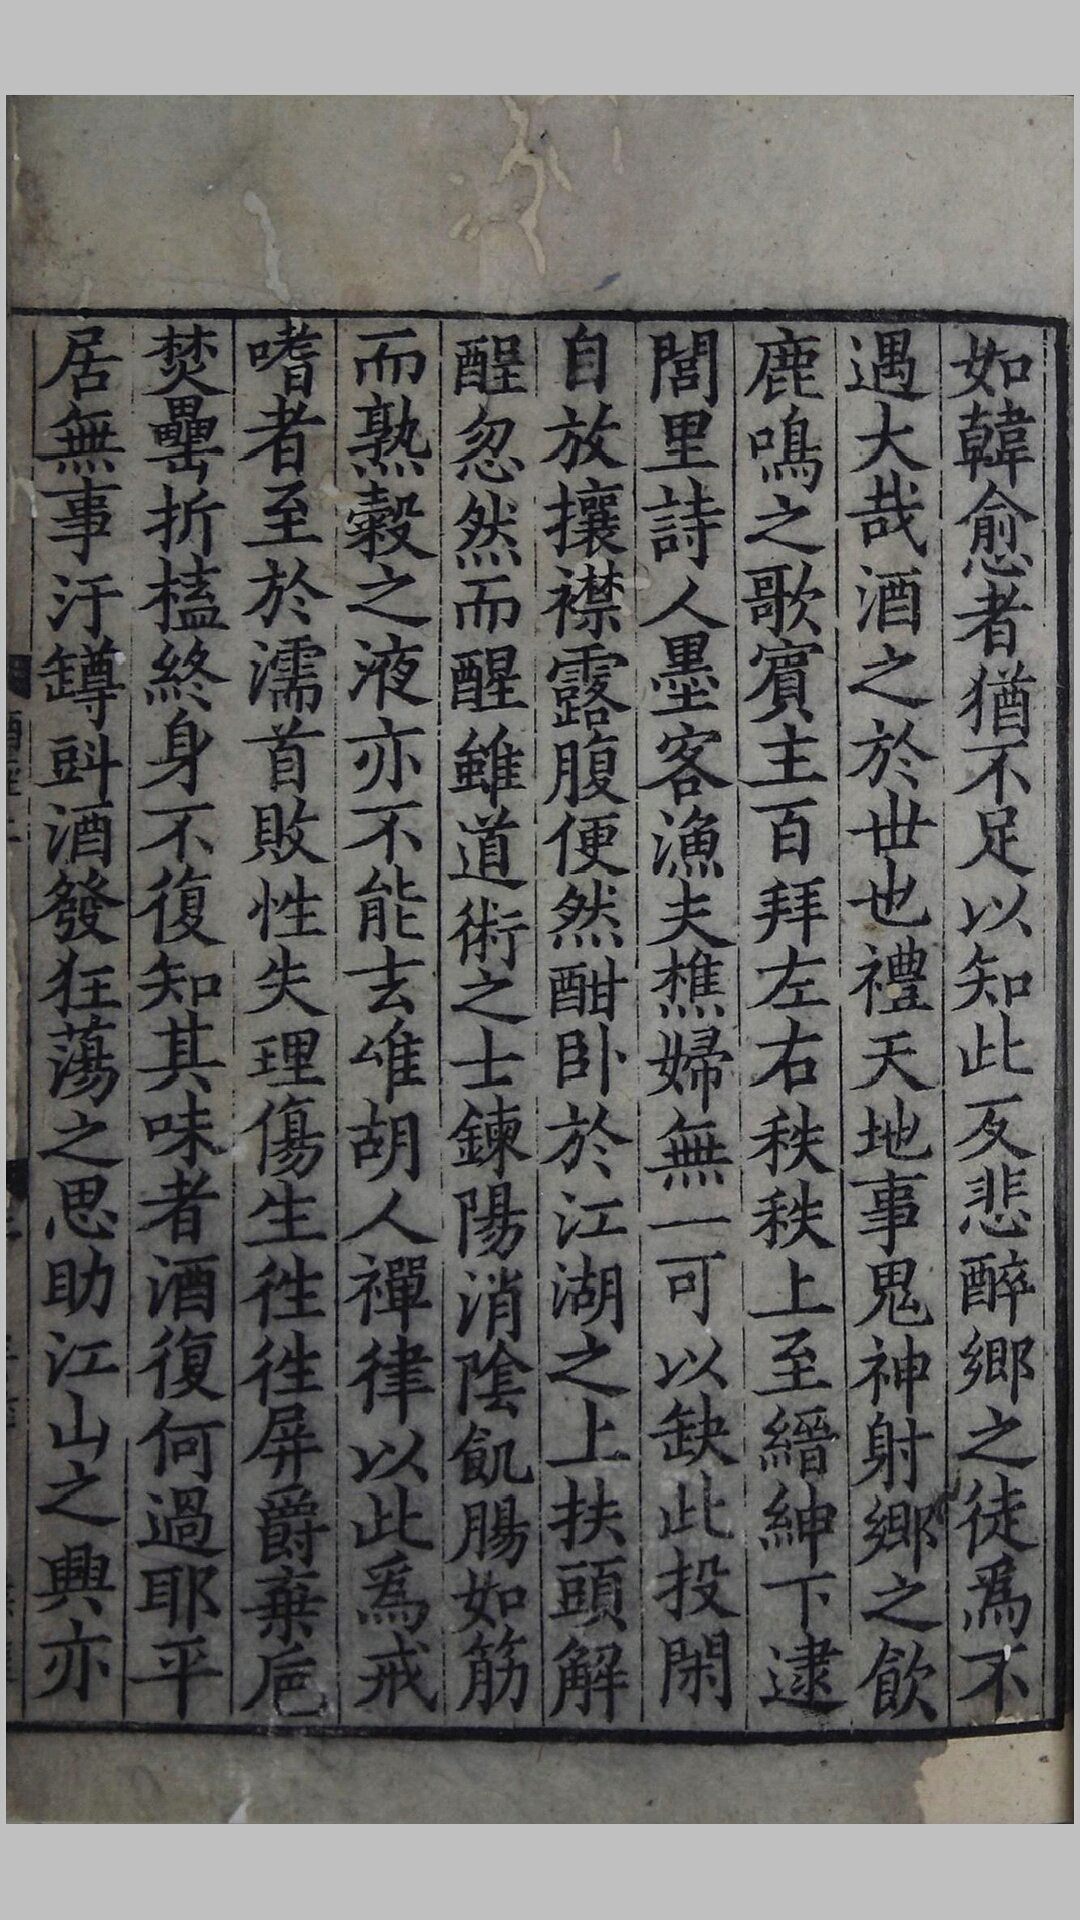 如韓愈者猶不足以知此反悲醉鄉之徒爲不
遇大哉酒之於世也禮天地事鬼神射鄉之飲
鹿鳴之歌賔主百拜左右秩秩上至縉紳下逮
閭里詩人墨客漁夫樵婦無一可以缺此投閑
自放攘襟露腹便然酣卧於江湖之上扶頭解
酲忽然而醒雖道術之士鍊陽消陰飢腸如筋
而熟穀之液亦不能去唯胡人禪律以此爲戒
嗜者至於濡首敗性失理傷生徃徃屏爵棄巵
焚罍折榼終身不復知其味者酒復何過耶平
居無事汙罇㪷酒發狂蕩之思助江山之興亦